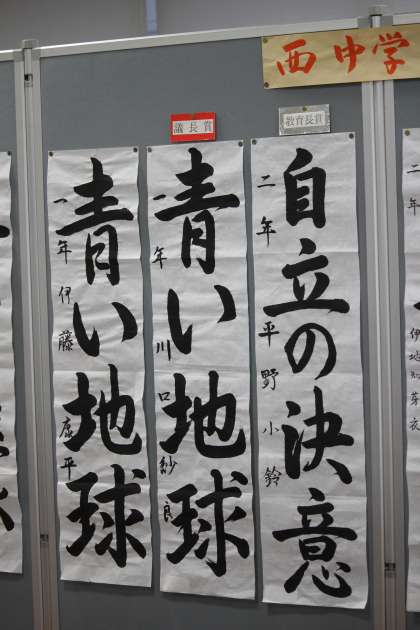 西中学
教育長賞
自立の決意
二年 平野小鈴
議長賞
青い地球
一年 川口紗良
青い地球
一年 伊藤康平
二年 伊地知芽衣